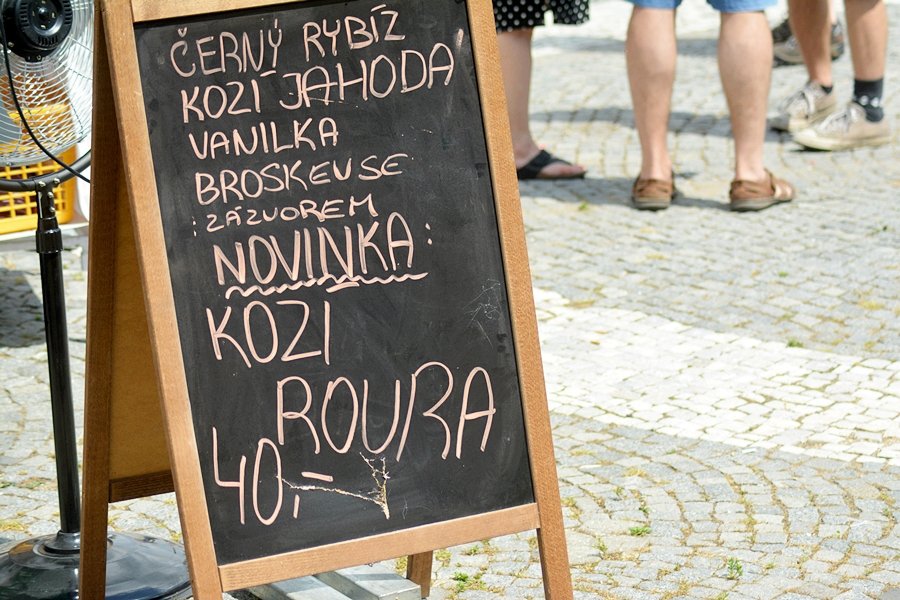 ČERNÝ RYBÍZ
KOZÍ JAHODA
VANILKA
BROSKEV SE
ZÁZVOREM
NOVINKA:
KOZI
ROURA
40,-